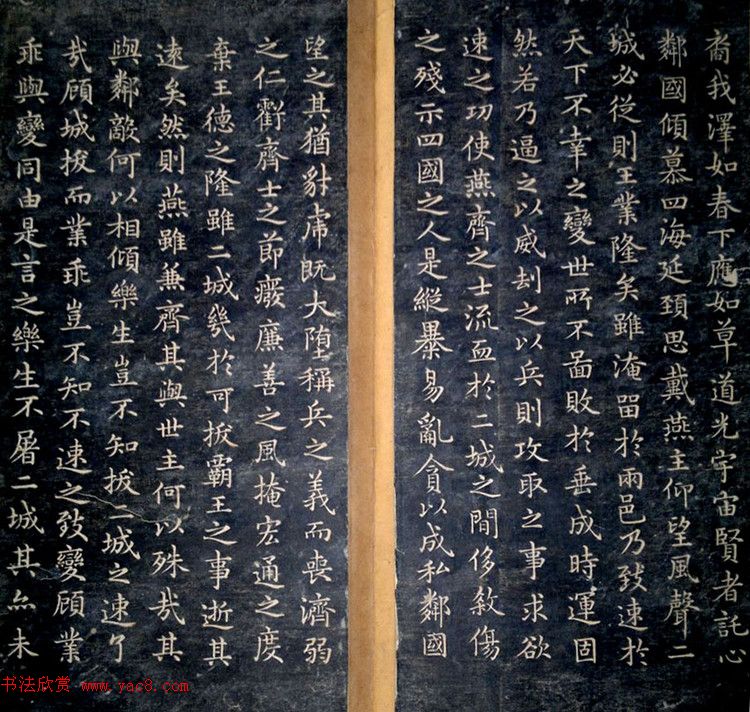 裔我澤如春下應如草道光宇宙賢者託心
鄰國傾慕四海延頸思戴燕主仰望風聲二
城必從則王業隆矣雖淹留於兩邑乃致速於
天下不幸之變世所不圖敗於垂成時運固
然若乃逼之以威劫之以兵則攻取之事求欲
速之功使燕齊之士流血於二城之間侈殺傷
之殘示四國之人是縱暴易亂貪以成私鄰國
望之其猶豺虎既大墮稱兵之義而喪濟弱
之仁虧齊士之節廢廉善之風掩宏通之度
棄王德之隆雖二城幾於可拔霸王之事逝其
遠矣然則燕雖兼齊其與世主何以殊哉其
與鄰敵何以相傾樂生豈不知拔二城之速了
哉顧城拔而業乖豈不知不速之致變顧業
乖與變同由是言之樂生不屠二城其亦未
书法欣赏 www.yac8.com